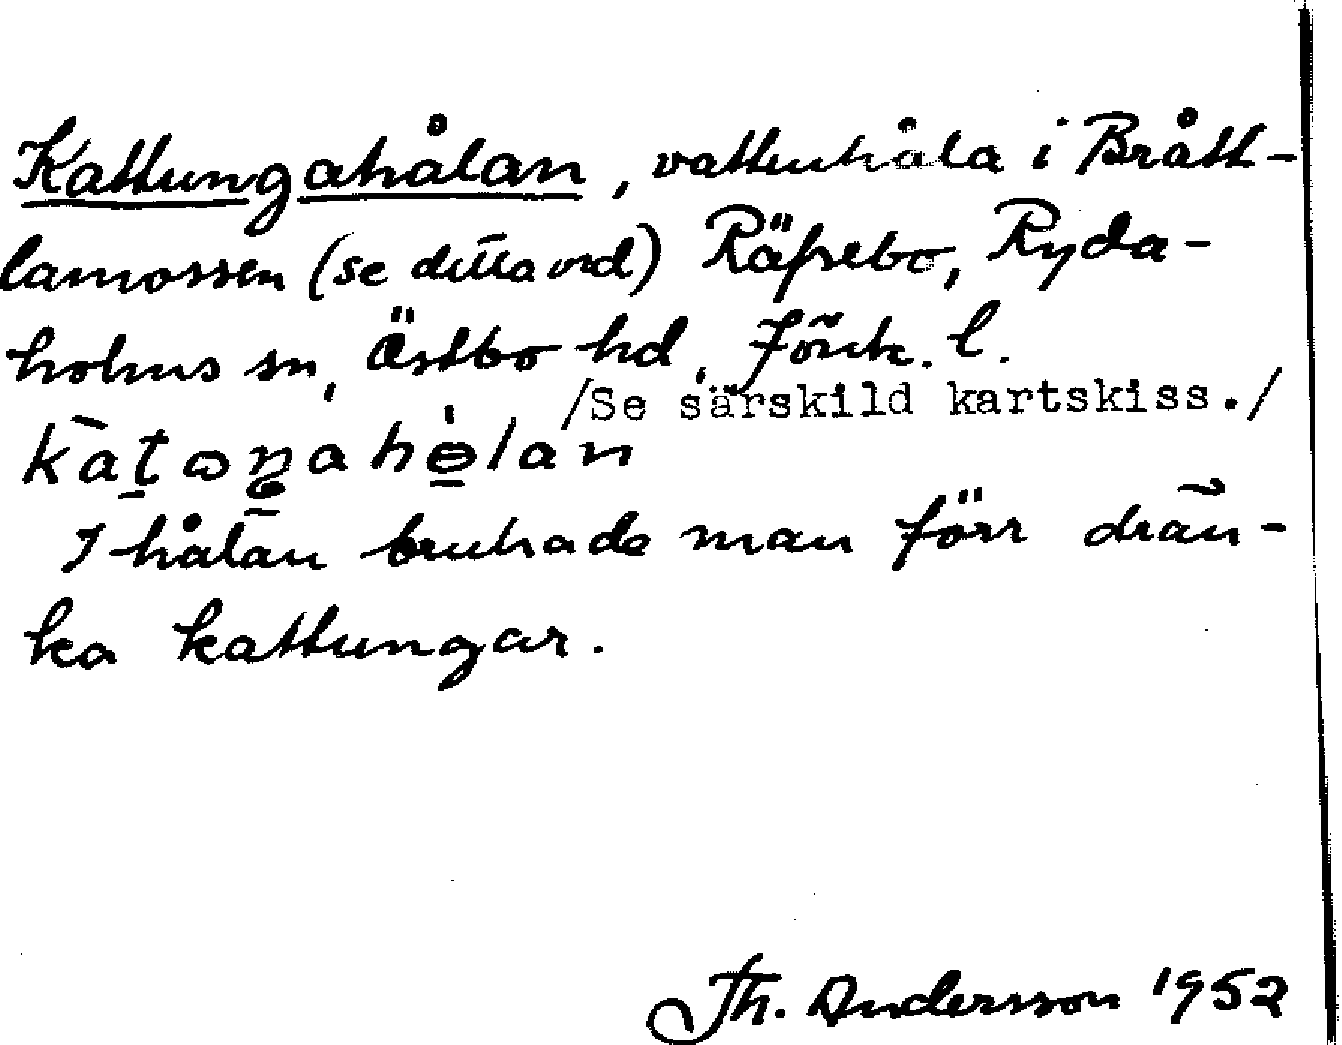 Kattungahålan, vattenhåla i Brått-
lamossen (se detta ord) Räfsebo, Ryda-
holms sn, Östbo hd, Jönk. l.
/Se särskild kartskiss./
I hålan brukade man förr drän-
ka kattungar.
Th. Andersson 1952